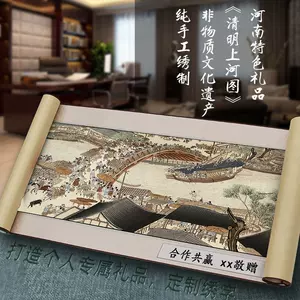 河南特色礼品
《清明上河图》
非物质文化遗产
纯手工绣制
合作共赢 xx敬赠
打造个人专属礼品，定制绣字